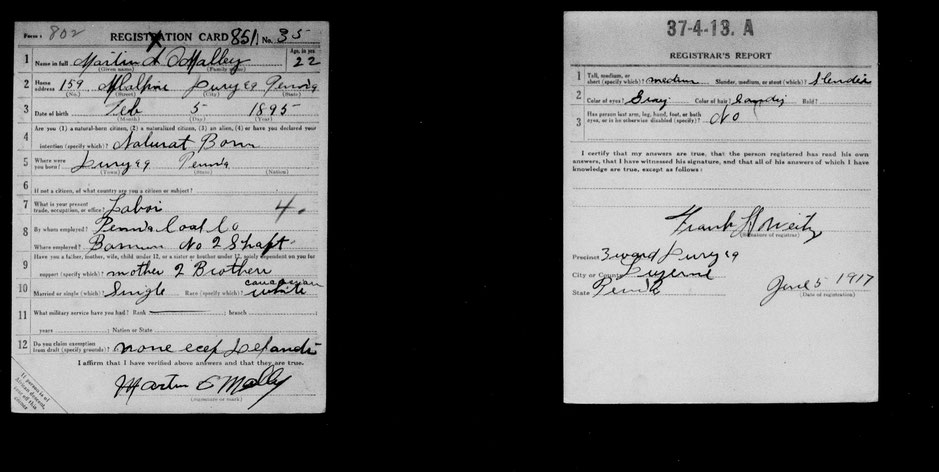 Form 1 802 REGISTRATION CARD 851 No. 35
1 Name in full Martin A O Malley Age, in yrs 22
(Given name) (Family name)
2 Home address 159 McAlpine Duryea Penn'a
(No.) (Street) (City) (State)
3 Date of birth Feb 5 1895
(Month) (Day) (Year)
4 Are you (1) a natural-born citizen, (2) a naturalized citizen, (3) an alien, (4) or have you declared your
intention (specify which)? Natural Born
5 Where were you born? Duryea Penn'a
(Town) (State) (Nation)
6 If not a citizen, of what country are you a citizen or subject?
7 What is your present trade, occupation, or office? Labor 4.
8 By whom employed? Penn'a Coal Co
Where employed? No 2 Shaft
9 Have you a father, mother, wife, child under 12, or a sister or brother under 12, solely dependent on you for
support (specify which)? mother 2 Brothers
10 Married or single (which)? Single Race (specify which)? caucasian white
11 What military service have you had? Rank ; branch ;
years ; Nation or State
12 Do you claim exemption from draft (specify grounds)? none
I affirm that I have verified above answers and that they are true.
Martin O Malley
(Signature or mark)
If person is of
African descent,
tear off this
corner
37-4-13. A
REGISTRAR'S REPORT
1 Tall, medium, or short (specify which)? medium Slender, medium, or stout (which)? Slender
2 Color of eyes? Gray Color of hair? Sandy Bald?
3 Has person lost arm, leg, hand, foot, or both
eyes, or is he otherwise disabled (specify)? No
I certify that my answers are true, that the person registered has read his own
answers, that I have witnessed his signature, and that all of his answers of which I have
knowledge are true, except as follows:
Frank H Weitz
(Signature of registrar)
Precinct 3 ward Duryea
City or County Luzerne
State Penn'a June 5 1917
(Date of registration)